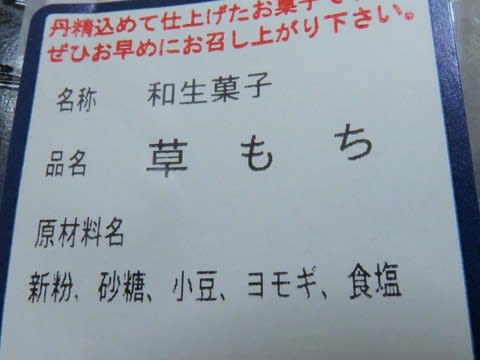 丹精込めて仕上げたお菓子で
ぜひお早めにお召し上がり下さい。
名称 和生菓子
品名 草もち
原材料名
新粉、砂糖、小豆、ヨモギ、食塩